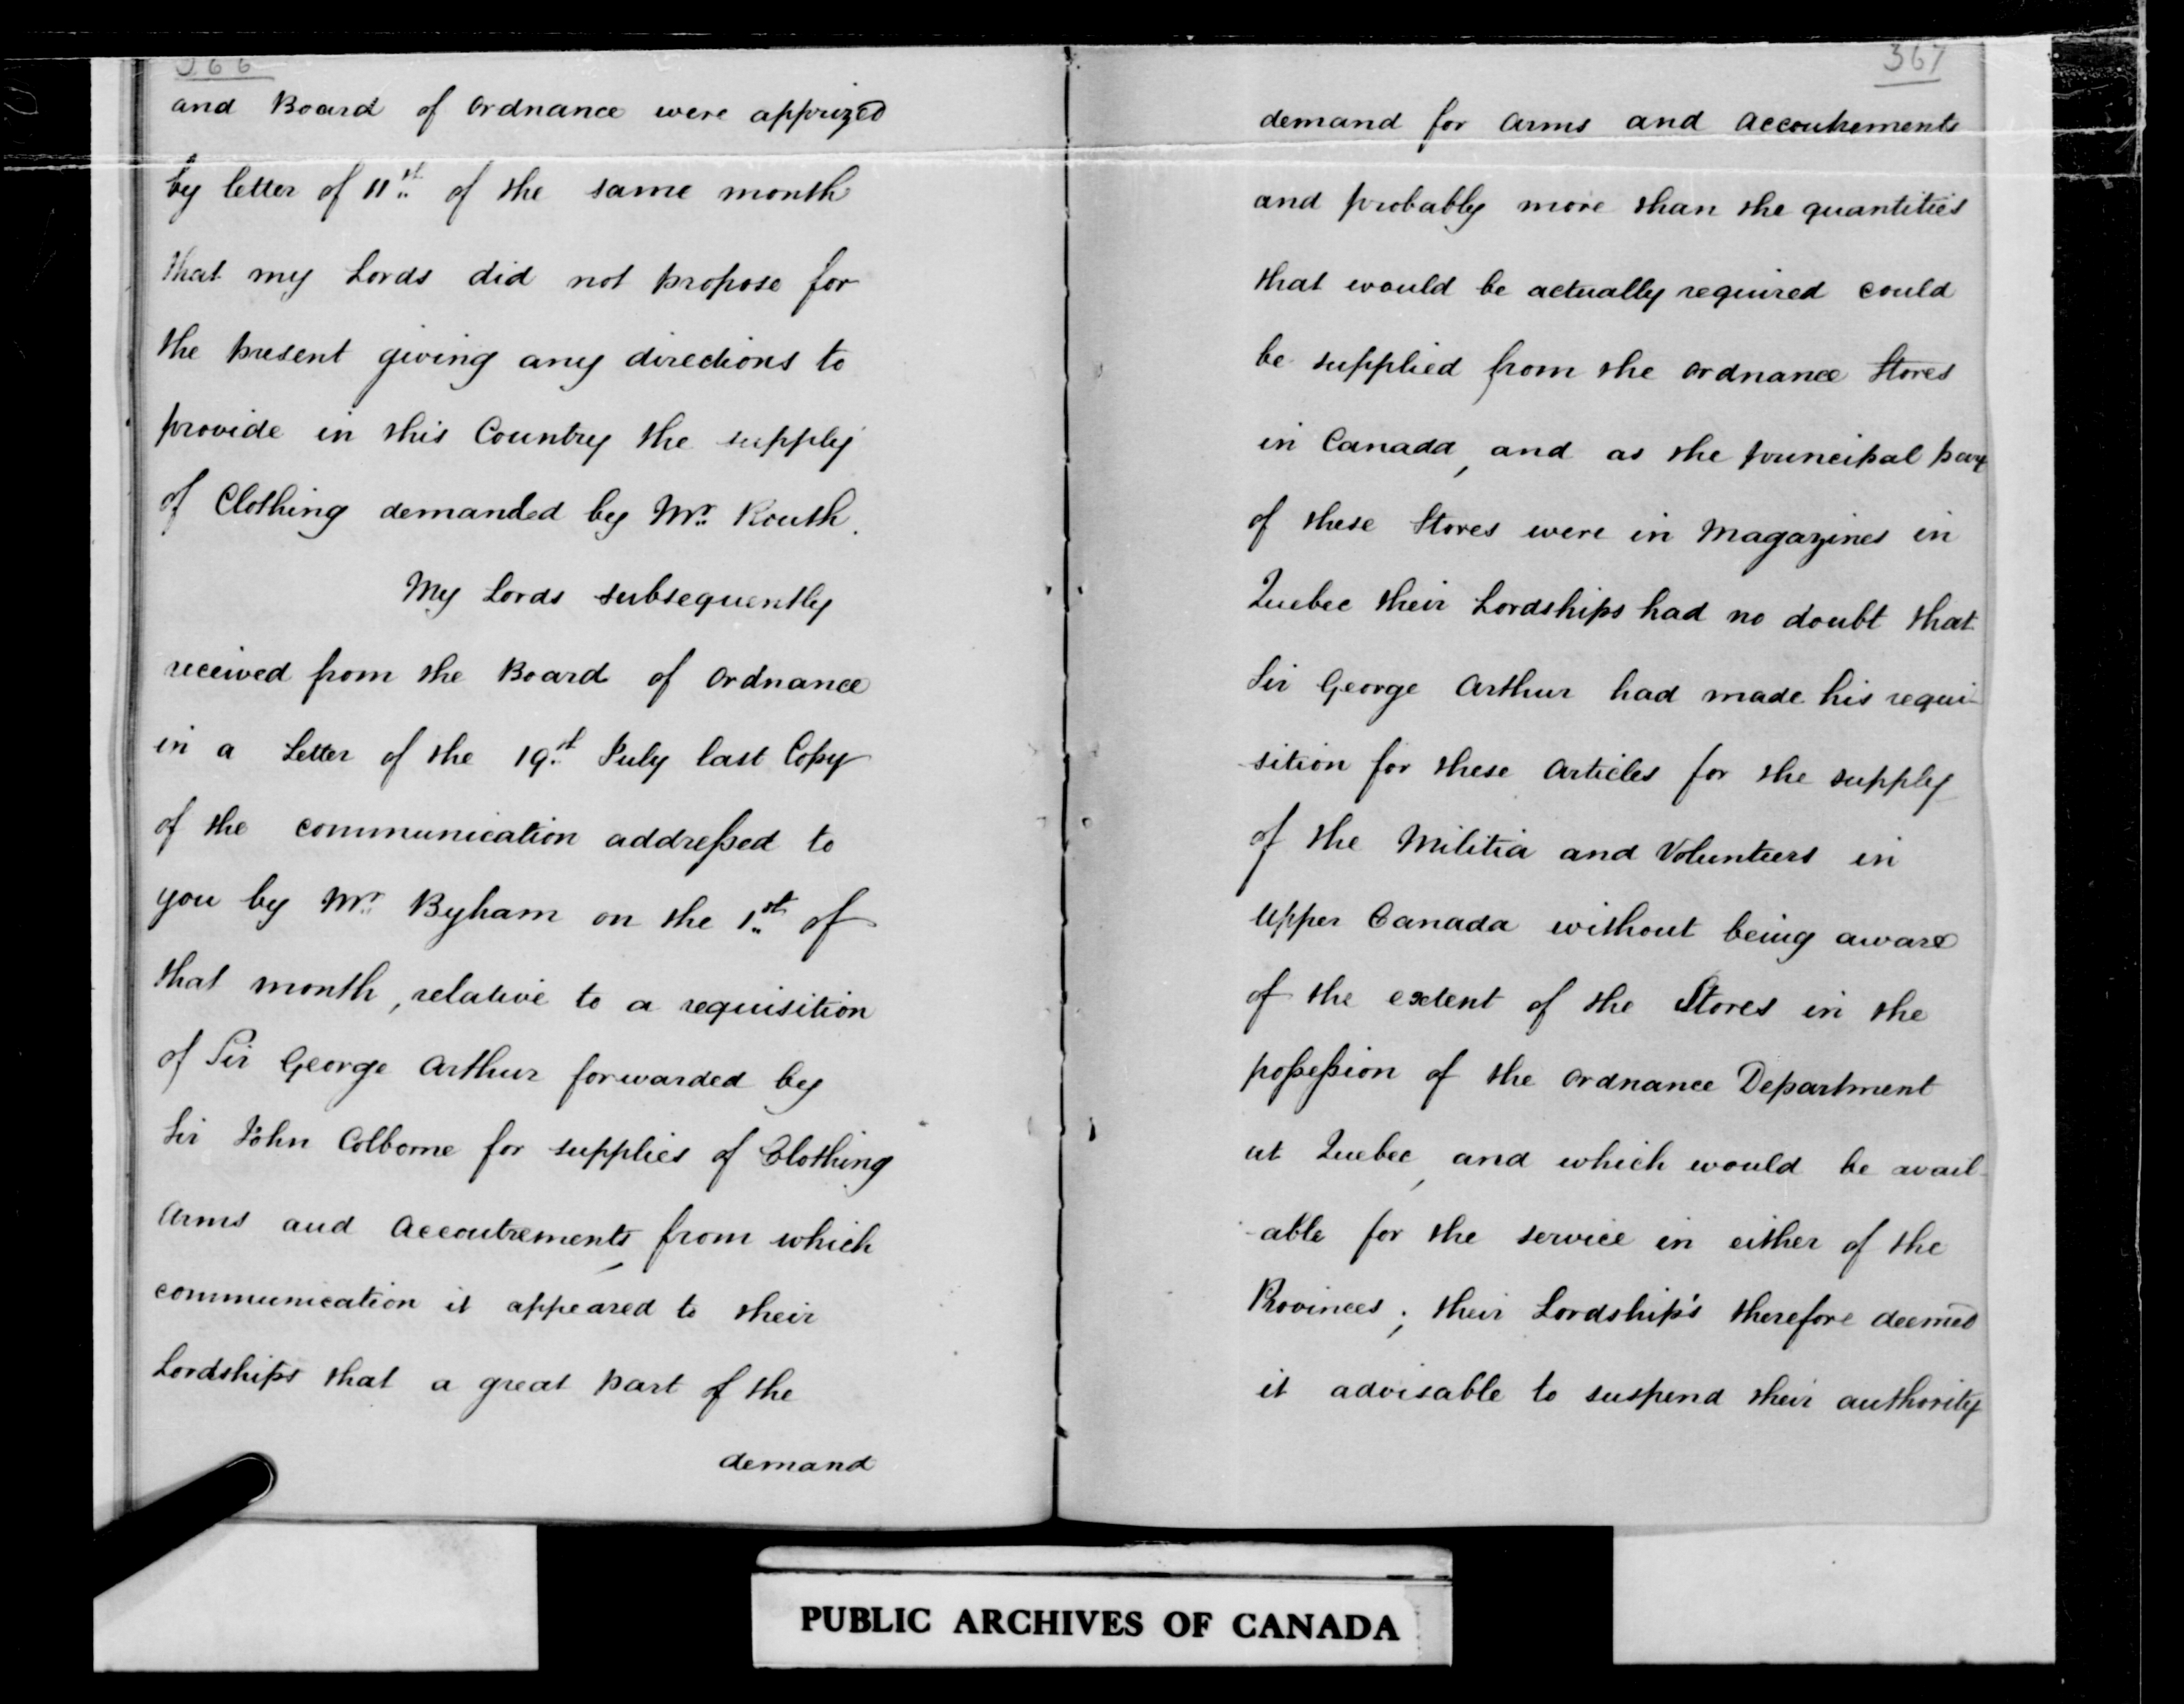 366
and Board of Ordnance were apprized
by letter of 11st of the same month
that my Lords did not propose for
the present giving any directions to
provide in this Country the supply
of Clothing demanded by Mr. Routh.
My Lords subsequently
received from the Board of Ordnance
in a Letter of the 19st July last Copy
of the communication addreſsed to
you by Mr. Byham on the 1st of
that month, relative to a requisition
of Sir George Arthur forwarded by
Sir John Colborne for supplies of Clothing
Arms and Accoutrements, from which
communication it appeared to their
Lordships that a great part of the
demand
367
demand for Arms and Accoutrements
and probably more than the quantities
that would be actually required could
be supplied from the Ordnance Stores
in Canada, and as the principal
of these Stores were in Magazines in
Quebec their Lordships had no doubt that
Sir George Arthur had made his requi-
sition for these Articles for the supply
of the Militia and Volunteers in
Upper Canada without being aware
of the extent of the Stores in the
poſseſsion of the Ordnance Department
at Quebec, and which would be avail
-able for the service in either of the
Provinces; their Lordship's therefore deemed
it advisable to suspend their authority
PUBLIC ARCHIVES OF CANADA